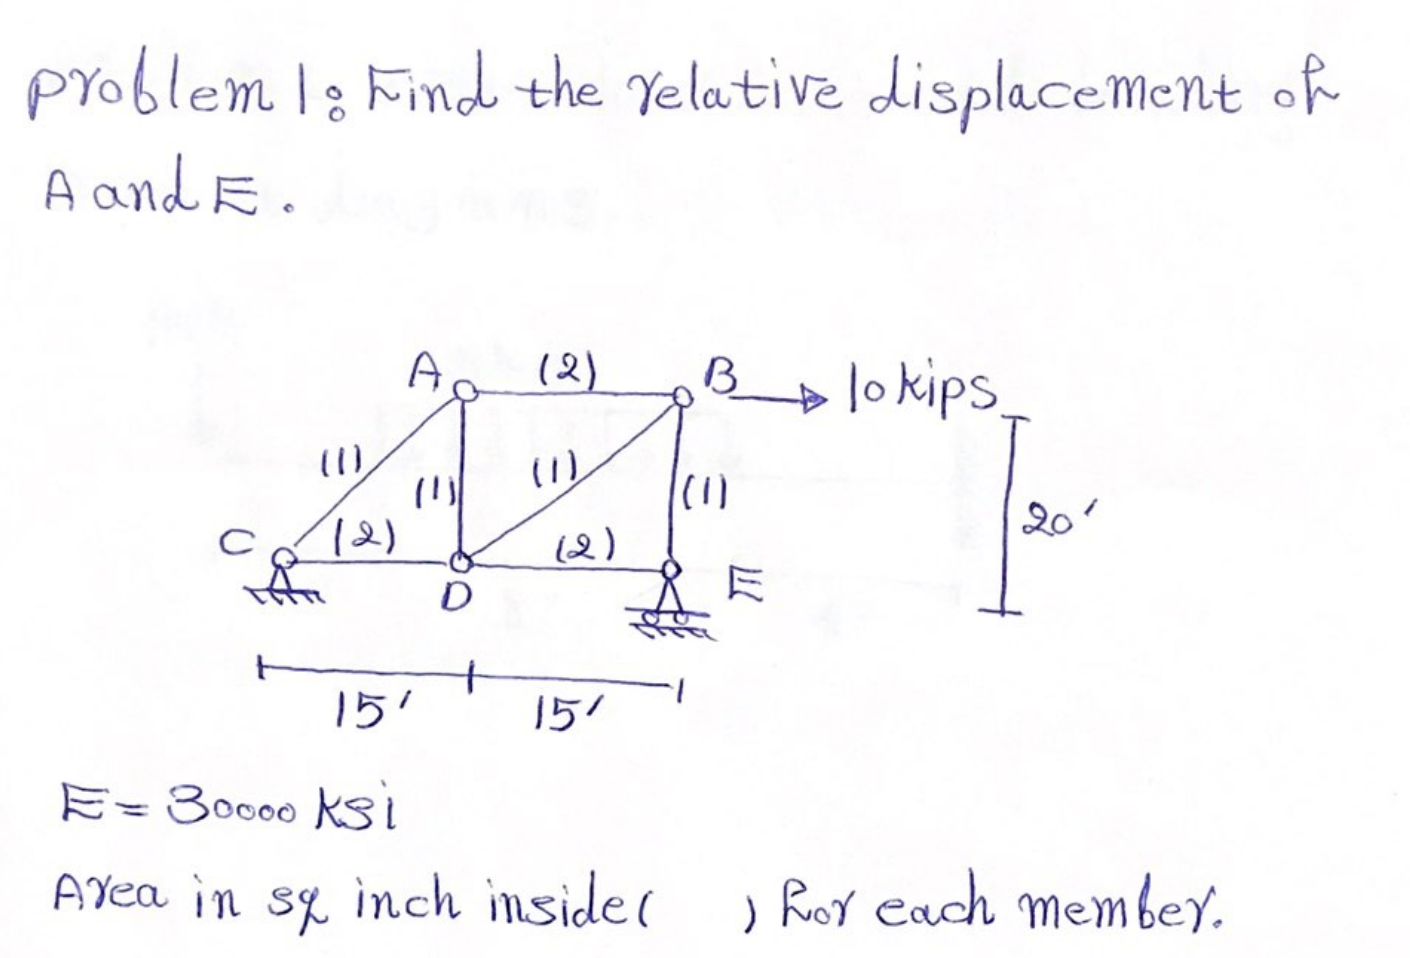 problem 1: Find the relative displacement of
A and E.
A (2) B 10 kips
(1) (1) (1) (1) 20'
C (2) (2)
D E
15' 15'
E = 30000 ksi
Area in sq inch inside ( ) for each member.